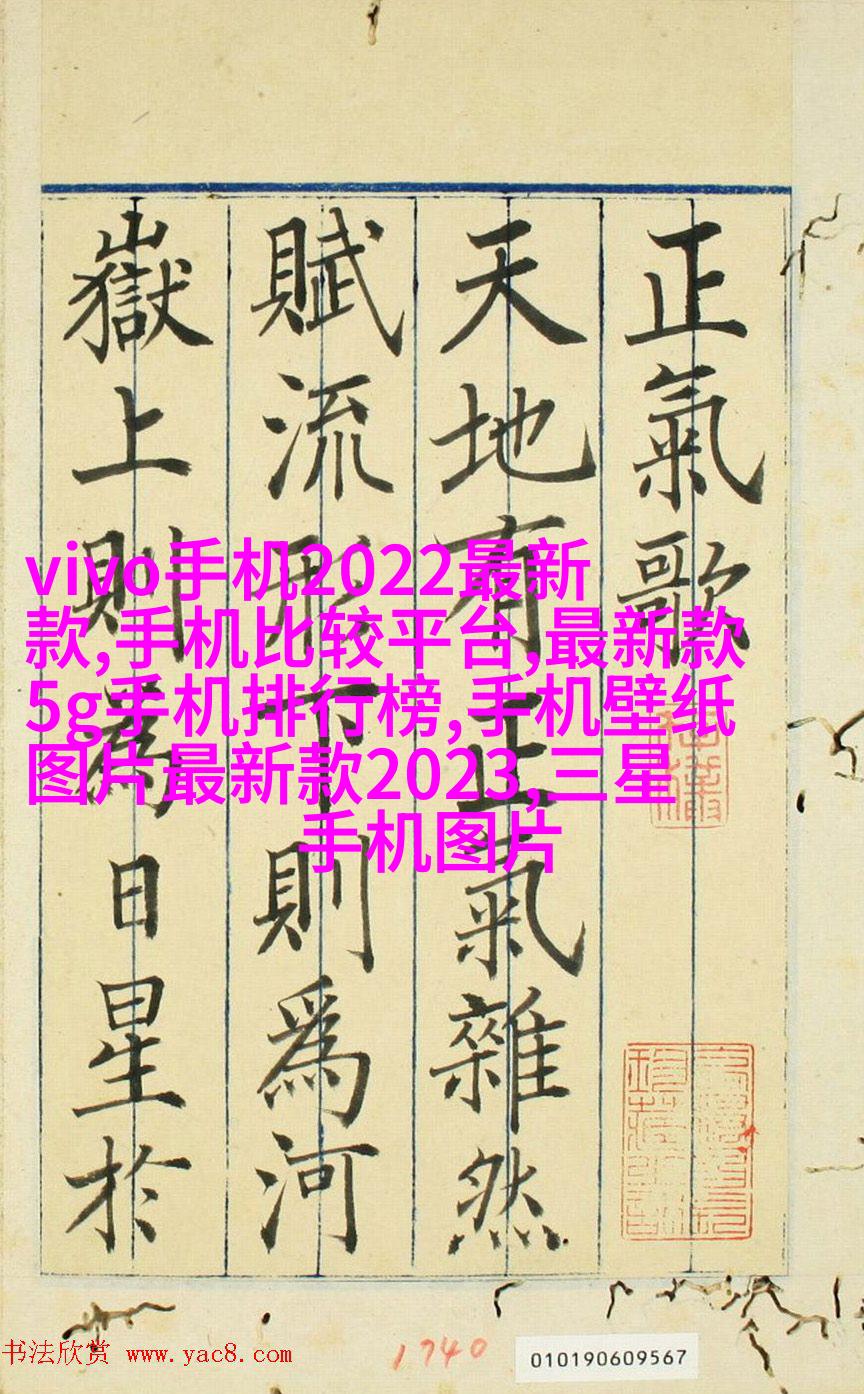 正氣歌
天地有正氣雜然
賦流形下則為河
嶽上則為日星於
vivo手机2022最新
款,手机比较平台,最新款
5g手机排行榜,手机壁纸
图片最新款2023,三星
手机图片
书法欣赏 www.yac8.com
1740
010190609567